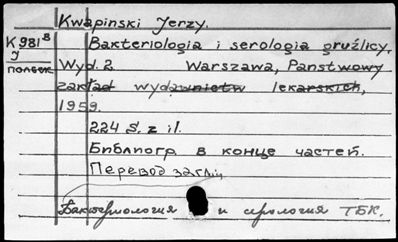 Kwapinski Jerzy.
К 981 В
J
полбек
Bakteriologia i serologia gruźlicy.
Wyd. 2 Warszawa, Państwowy
zakład wydawnictw lekarskich,
1959.
224 S. z il.
Библиогр. в конце частей.
Перевод загл.:
Бактериология и серология ТБК.